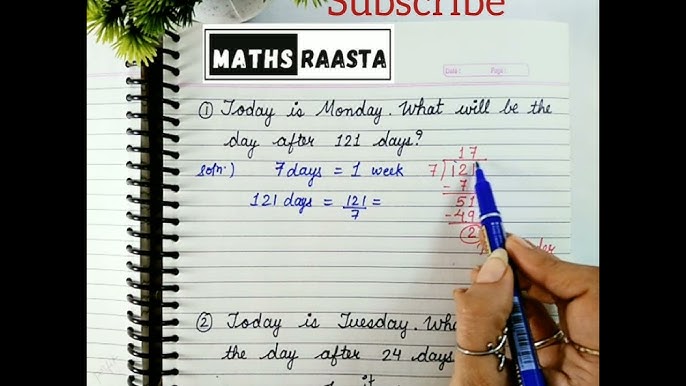 Subscribe
MATHS RAASTA
Date : Page :
① Today is Monday. What will be the
day after 121 days?
soln.) 7 days = 1 week
121 days = 121/7 =
17
7)121
- 7
51
- 49
2
② Today is Tuesday.
the day after 24 days